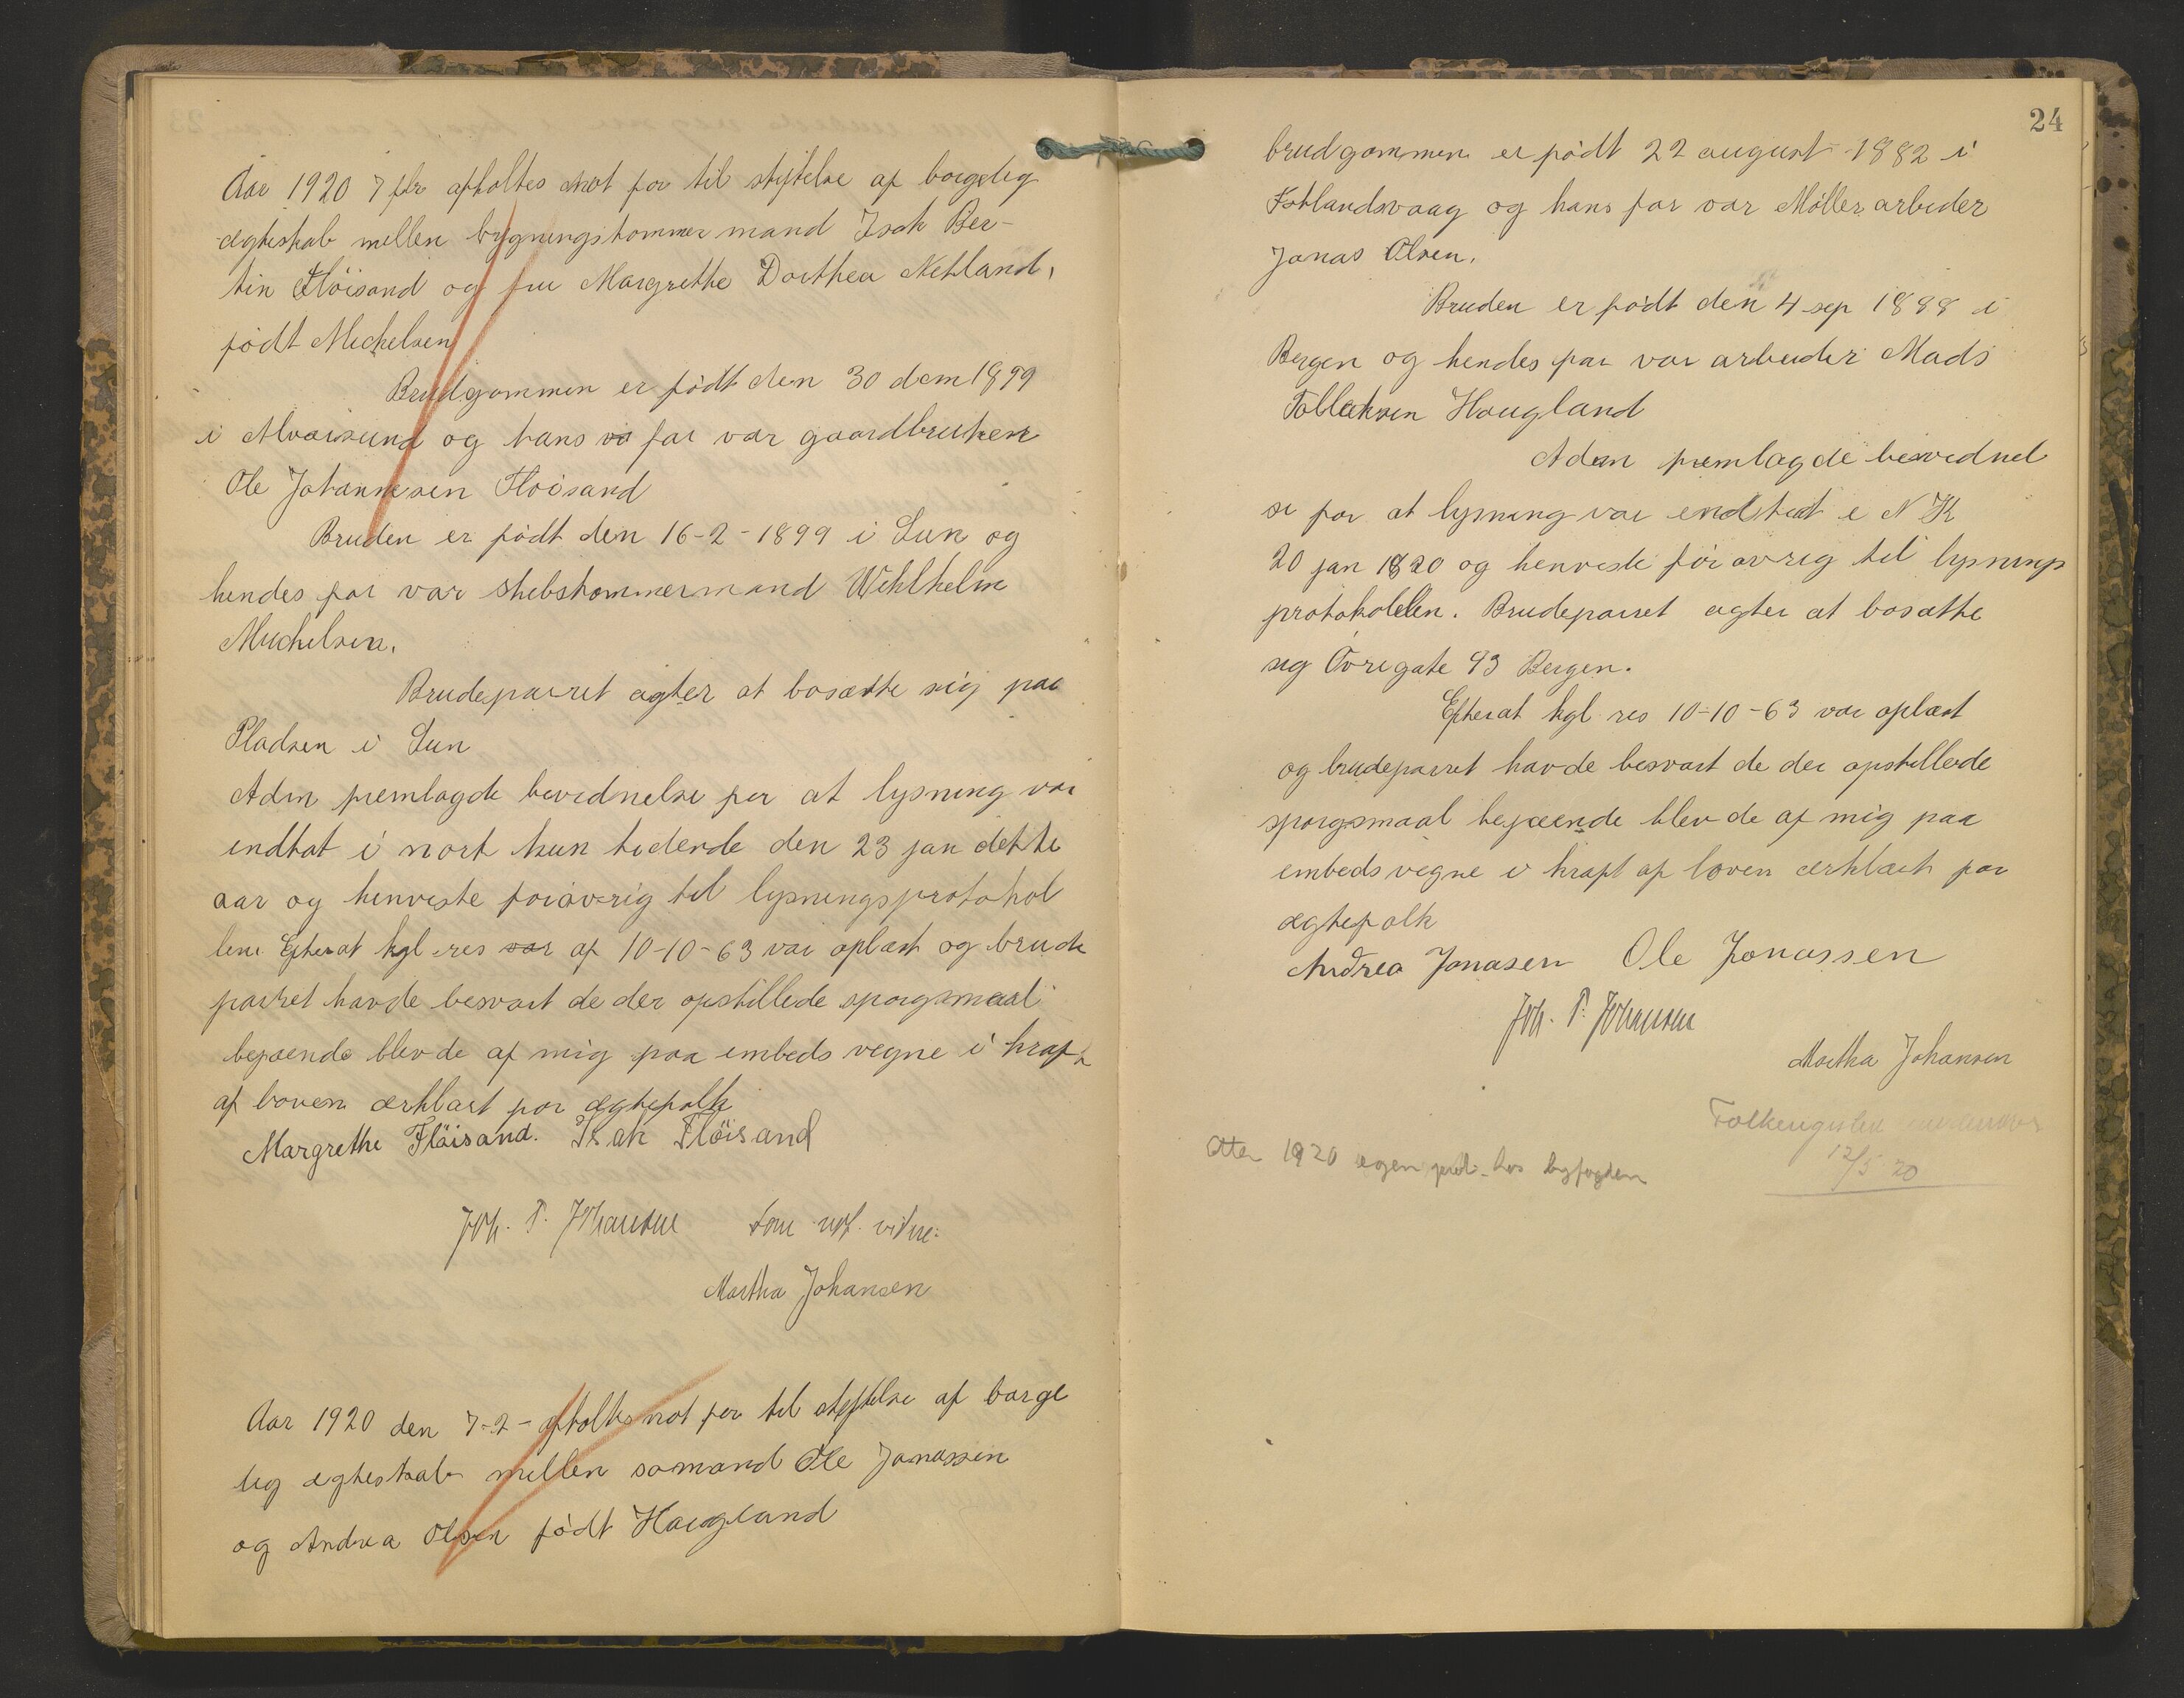 Aar 1920 7 febr afholtes not for til stiftelse af borgelig
ægteskab mellen bygningstommermand Isak Ber-
tin Flöisand og fru Margrethe Dorthea Netland,
födt Michelsen
Brudgommen er födt den 30 dem 1899
i Alvaisund og hans va far var gaardbruker
Ole Johannesen Flöisand
Bruden er födt den 16-2-1899 i Lun og
hendes far var skibstommermand Wihlhelm
Muchelsen.
Brudeparret agter at bosætte sig paa
Pladsen i Lun
Aden fremlagde bevidnelse for at lysning var
indtat i nort kun tidende den 23 jan dette
aar og henviste forövrig til lysningsprotokol
lene Efterat kgl res var af 10-10-63 var oplæst og brude
parret havde besvart de der opstillede sporgsmaal
bejaende blev de af mig paa embeds vegne i kraft
af loven ærklært for ægtefolk
Margrethe Flöisand. Isak Flöisand
Joh. P. Johansen Som not. vitne:
Martha Johansen
Aar 1920 den 7-2- afholtes not for til stiftelse af borge
lig ægteskab mellen somand Ole Jonassen
og Andrea Olsen födt Haugland
24
brudgommen er födt 22 august 1882 i
Fotlandsvaag og hans far var Möller arbeider
Jonas Olsen.
Bruden er födt den 4 sep 1888 i
Bergen og hendes far var arbeider Mads
Tollaksen Haugland
Aden fremlagde bevidnel
se for at lysning var endtat i N K
20 jan 1920 og henviste for övrig til lysnings
protokollen. Brudeparret agter at bosætte
sig Övregate 93 Bergen.
Efterat kgl res 10-10-63 var oplæst
og brudeparret havde besvart de der opstillede
sporgsmaal bejaende blev de af mig paa
embeds vegne i kraft af loven ærklært for
ægtefolk
Andrea Jonasen Ole Jonassen
Joh. P. Johansen
Martha Johansen
Folkeregistret
12/5 20
Etter 1920 egen prot. hos byfogden